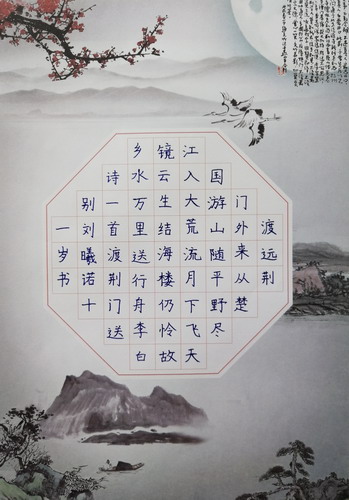 渡远荆
门外来从楚
国游山随平野尽
江入大荒流月下飞天
镜云生结海楼仍怜故
乡水万里送行舟李白
诗一首渡荆门送
别刘曦诺十
一岁书